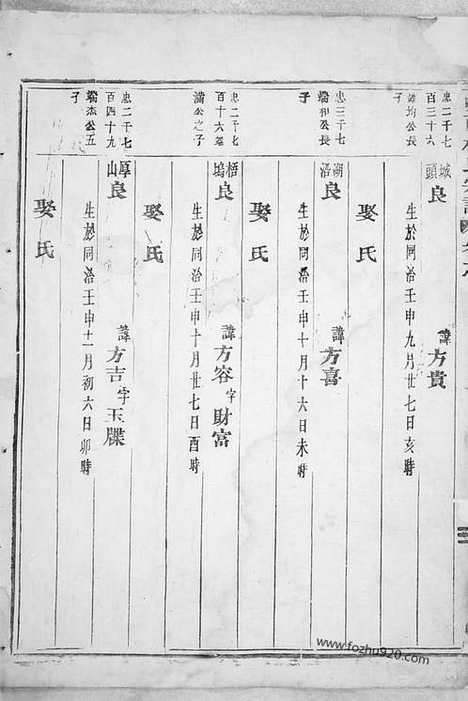 忠二千七
百三十六
公長
城頭良
諱方貴
生於同治壬申九月廿七日亥時
娶氏
忠二千七
瑞和公長
子
湖沿良
諱方喜
生於同治壬申十月十六日未時
娶氏
忠二千七
百十六
滿公之子
梧塢良
諱方容字財富
生於同治壬申十月廿七日酉時
娶氏
忠二千七
百四十九
瑞杰公五
子
厚山良
諱方吉字玉牒
生於同治壬申十一月初六日卯時
娶氏
www.fozhu920.com